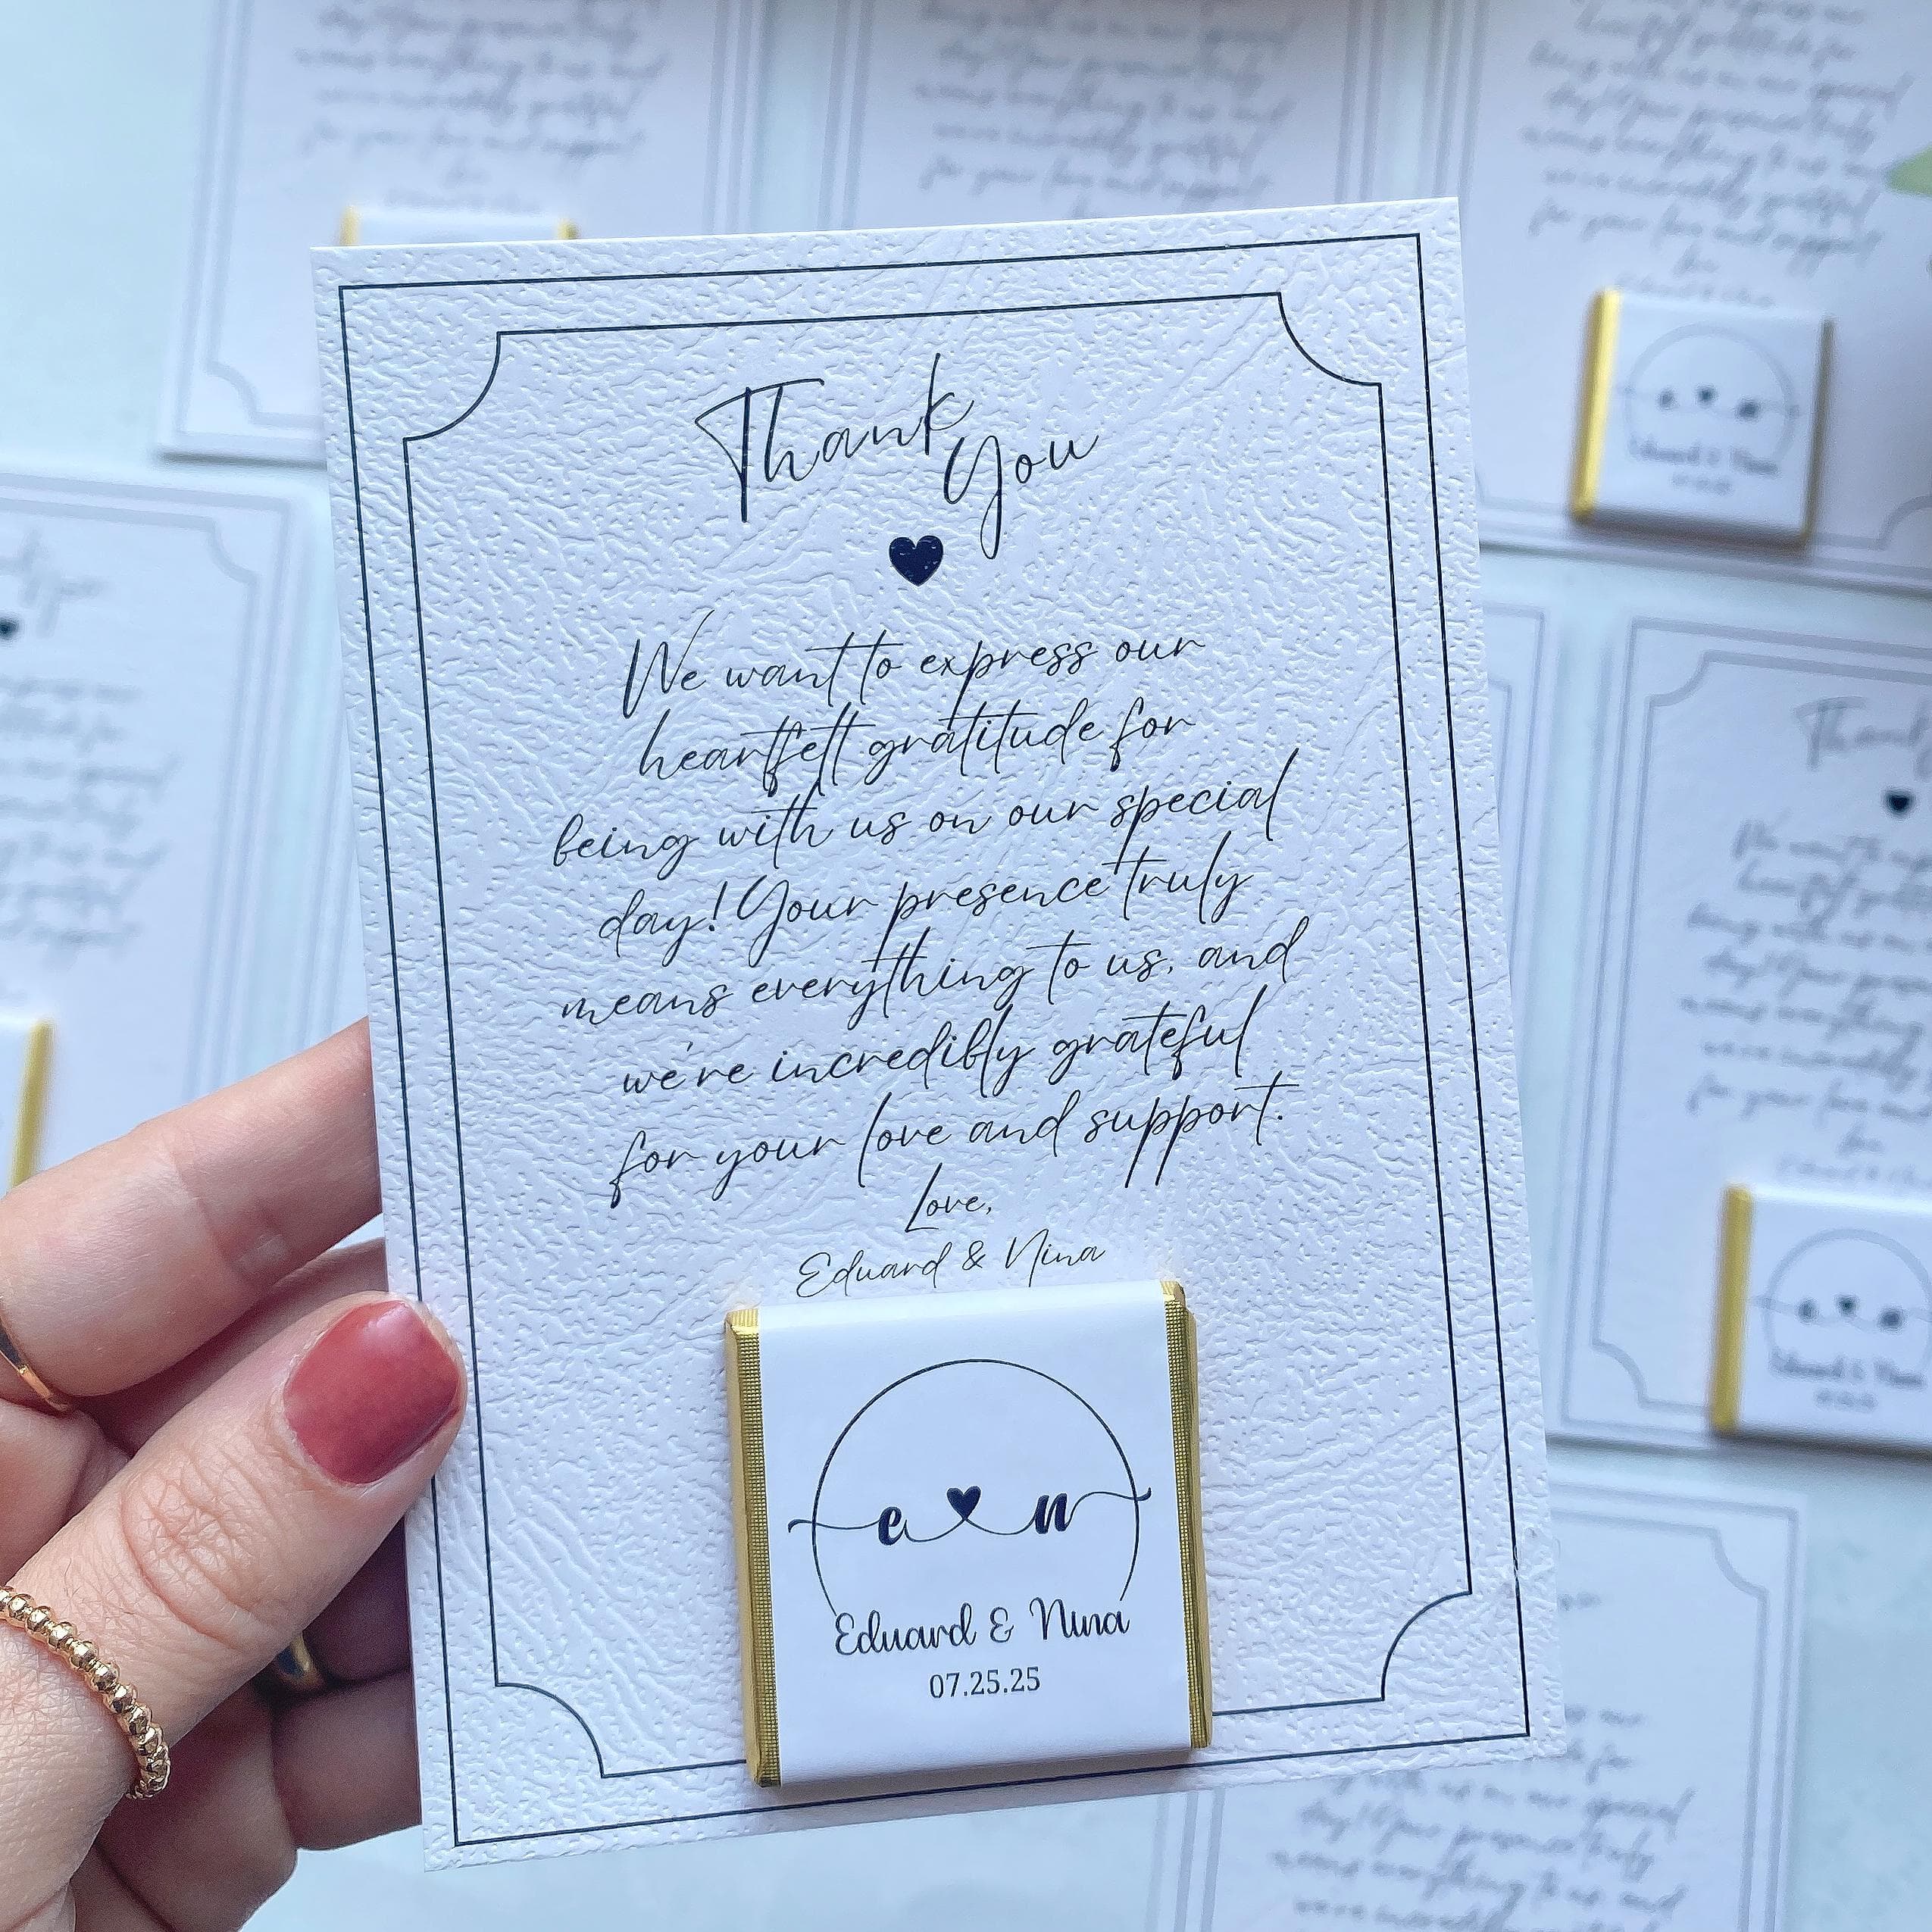 Thank
You
We want to express our
heartfelt gratitude for
being with us on our special
day! Your presence truly
means everything to us, and
we're incredibly grateful
for your love and support.
Love,
Eduard & Nina
e n
Eduard & Nina
07.25.25